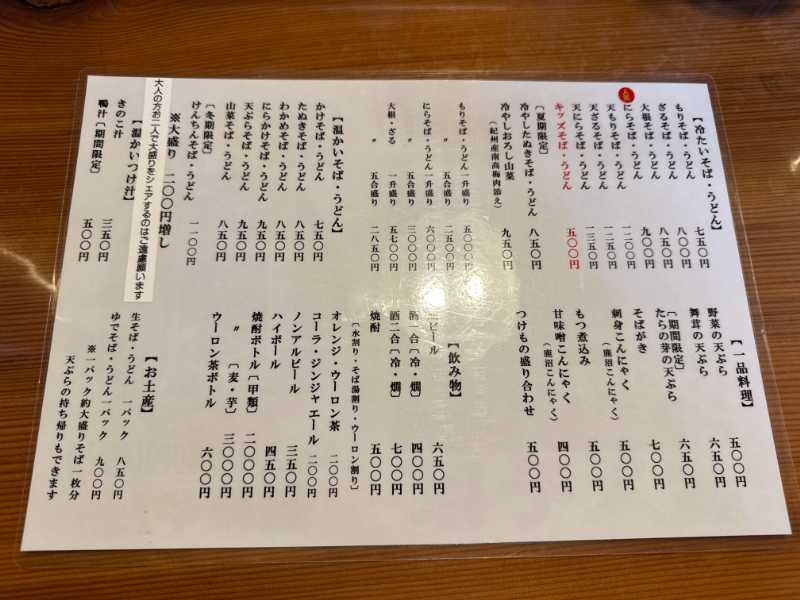 【冷たいそば・うどん】
もりそば・うどん 七五〇円
ざるそば・うどん 八〇〇円
大根そば・うどん 八五〇円
にらそば・うどん 九〇〇円
天もりそば・うどん 一二〇〇円
天ざるそば・うどん 一二五〇円
天にらそば・うどん 一三五〇円
キッズそば・うどん 五〇〇円
〔夏期限定〕
冷やしたぬきそば・うどん 八五〇円
冷やしおろし山菜 九五〇円
（紀州産南高梅肉添え）
もりそば・うどん 一升盛り 五〇〇〇円
〃 五合盛り 二五〇〇円
にらそば・うどん 一升盛り 六〇〇〇円
〃 五合盛り 三〇〇〇円
大根・ざる 一升盛り 五七〇〇円
〃 五合盛り 二八五〇円
【温かいそば・うどん】
かけそば・うどん 七五〇円
たぬきそば・うどん 八五〇円
わかめそば・うどん 八五〇円
にらかけそば・うどん 九五〇円
天ぷらそば・うどん 九五〇円
山菜そば・うどん 八五〇円
〔冬期限定〕
けんちんそば・うどん 一一〇〇円
※大盛り 二〇〇円増し
大人の方お二人で大盛りをシェアするのはご遠慮願います
【温かいつけ汁】
きのこ汁 三五〇円
鴨汁〔期間限定〕 五〇〇円
【一品料理】
野菜の天ぷら 五〇〇円
舞茸の天ぷら 六五〇円
〔期間限定〕
たらの芽の天ぷら 六五〇円
そばがき 七〇〇円
刺身こんにゃく 五〇〇円
（鹿沼こんにゃく）
もつ煮込み 五〇〇円
甘味噌こんにゃく 四〇〇円
（鹿沼こんにゃく）
つけもの盛り合わせ 五〇〇円
【飲み物】
生ビール 六五〇円
酒一合〔冷・燗〕 四〇〇円
酒二合〔冷・燗〕 七〇〇円
焼酎 五〇〇円
〔水割り・そば湯割り・ウーロン割り〕
オレンジ・ウーロン茶 二〇〇円
コーラ・ジンジャエール 二〇〇円
ノンアルビール 三五〇円
ハイボール 四五〇円
焼酎ボトル〔甲類〕 二〇〇〇円
〃〔麦・芋〕 三〇〇〇円
ウーロン茶ボトル 六〇〇円
【お土産】
生そば・うどん 一パック 八五〇円
ゆでそば・うどん一パック 九〇〇円
※一パック約大盛りそば一枚分
天ぷらの持ち帰りもできます